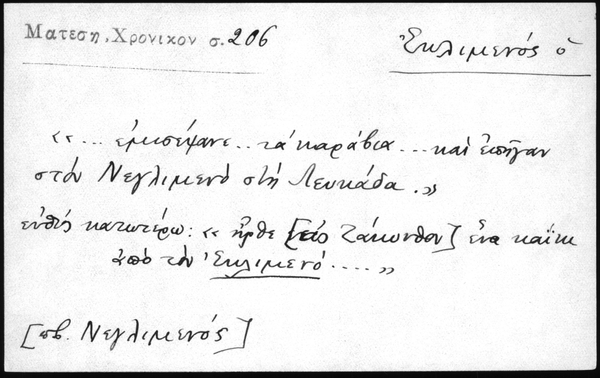 Ματεση, Χρονικον σ. 206
Ἐκλιμενός ὁ
«... ἐμισέψανε.. τὰ καράβια... καὶ ἐπῆγαν
στὸν Νεγλιμενὸ στὴ Λευκάδα.»
εὐθὺς κατωτέρω: « ἦρθε [εἰς Ζάκυνθον] ἕνα καΐκι
ἀπὸ τὸν Ἐκλιμενό.... »
[πβ. Νεγλιμενός]